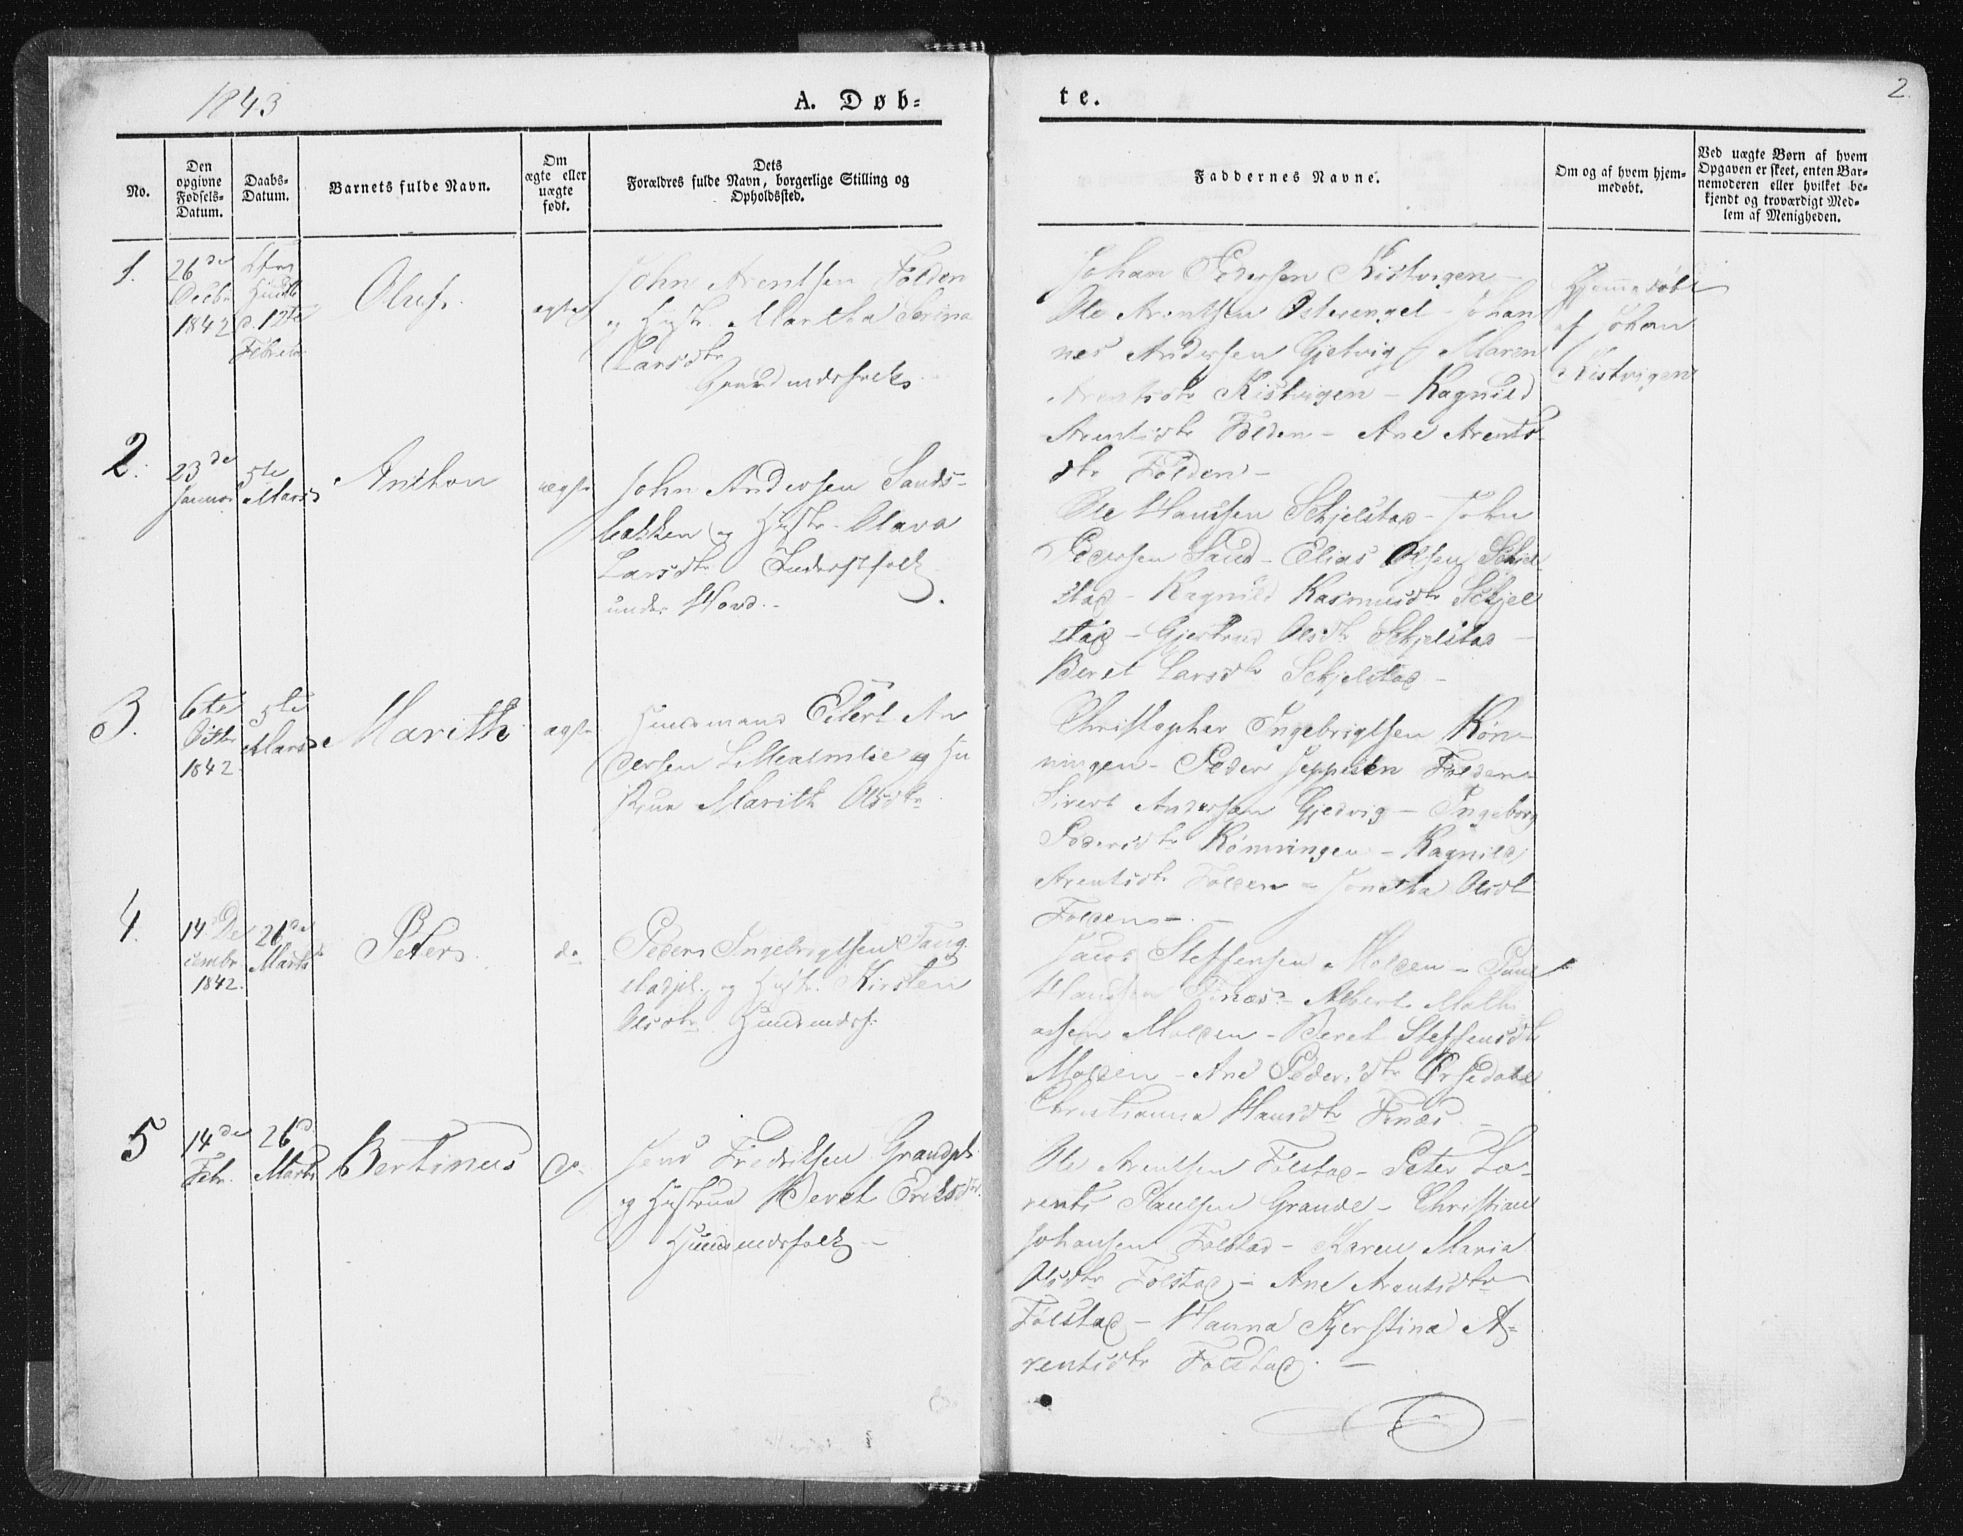 1843
A. Døb-
te.
2
No.
Den
opgivne
Fødsels-
Datum.
Daabs-
Datum.
Barnets fulde Navn.
Om
ægte eller
uægte
født.
Dets
Forældres fulde Navn, borgerlige Stilling og
Opholdssted.
Faddernes Navne.
Om og af hvem hjem-
medøbt.
Ved uægte Børn af hvem
Opgaven er skeet, enten Bar-
nemoderen eller hvilket be-
kjendt og troværdigt Med-
lem af Menigheden.
1.
26de
Decbr
1842
d. 12te
Februar
Oluf
ægte
John Arentsen Folden
og Hustr. Martha Serina
Larsdtr
Huusmandsfolk
Johan Pedersen Kistvigen
Ole Arentsen Osterengel - Johan
nes Andersen Gjetvig - Maren
Arentsdtr Kistvigen - Ragnild
Arentsdtr Folden - Ane Arents
dtr Folden -
Hjemmedøbt
af Johan
Kistvigen
2.
23de
Januar
5te
Marts
Anthon
ægte
John Andersen Sands-
bakken og Hustr. Olava
Larsdtr Inderstfolk
under Hovd. -
Ole Hansen Schjelstad - John
Pedersen Sand - Elias Olsen Schjel
stad - Ragnild Rasmusdtr Schjel
stad - Gjertrud Olsdtr Schjelstad -
Beret Larsdtr Schjelstad -
3.
6te
Octbr
1842
5te
Marts
Marith
ægte
Huusmand Eilert An
dersen og Hu
strue Marith Olsdtr
Christopher Ingebrigtsen Røn-
ningen - Peder Jeppesen Folden
Sivert Andersen Gjedvig - Ingeborg
Pedersdtr Rønningen - Ragnild
Arentsdtr Folden - Jonetta Olsdt
Folden -
4.
14 De
cembr
1842.
26de
Marts
Peter
do
Peder Ingebrigtsen Faug
stadpl. og Hustr. Kirsten
Olsdtr Huusmdsf.
Jacob Steffensen Molden - Paul
Hansen Finæs - Albert Math
assen Molden - Beret Steffensdtr
Molden - Ane Pedersdtr Orsedahl
Christianna Hansdtr Finæs -
5
14de
Febr.
26d
Marts
Bertinus
do.
Jens Fredriksen Grandpl.
og Hustrue Beret Eriksdtr.
Huusmdsfolk -
Ole Arentsen Følstad - Peter Lo-
rents Paulsen Grande - Christian
Johansen Følstad - Karen Maria
Olsdtr Følstad - Ane Arentsdtr
Følstad - Hanna Kjerstina A-
rentsdtr Følstad. -